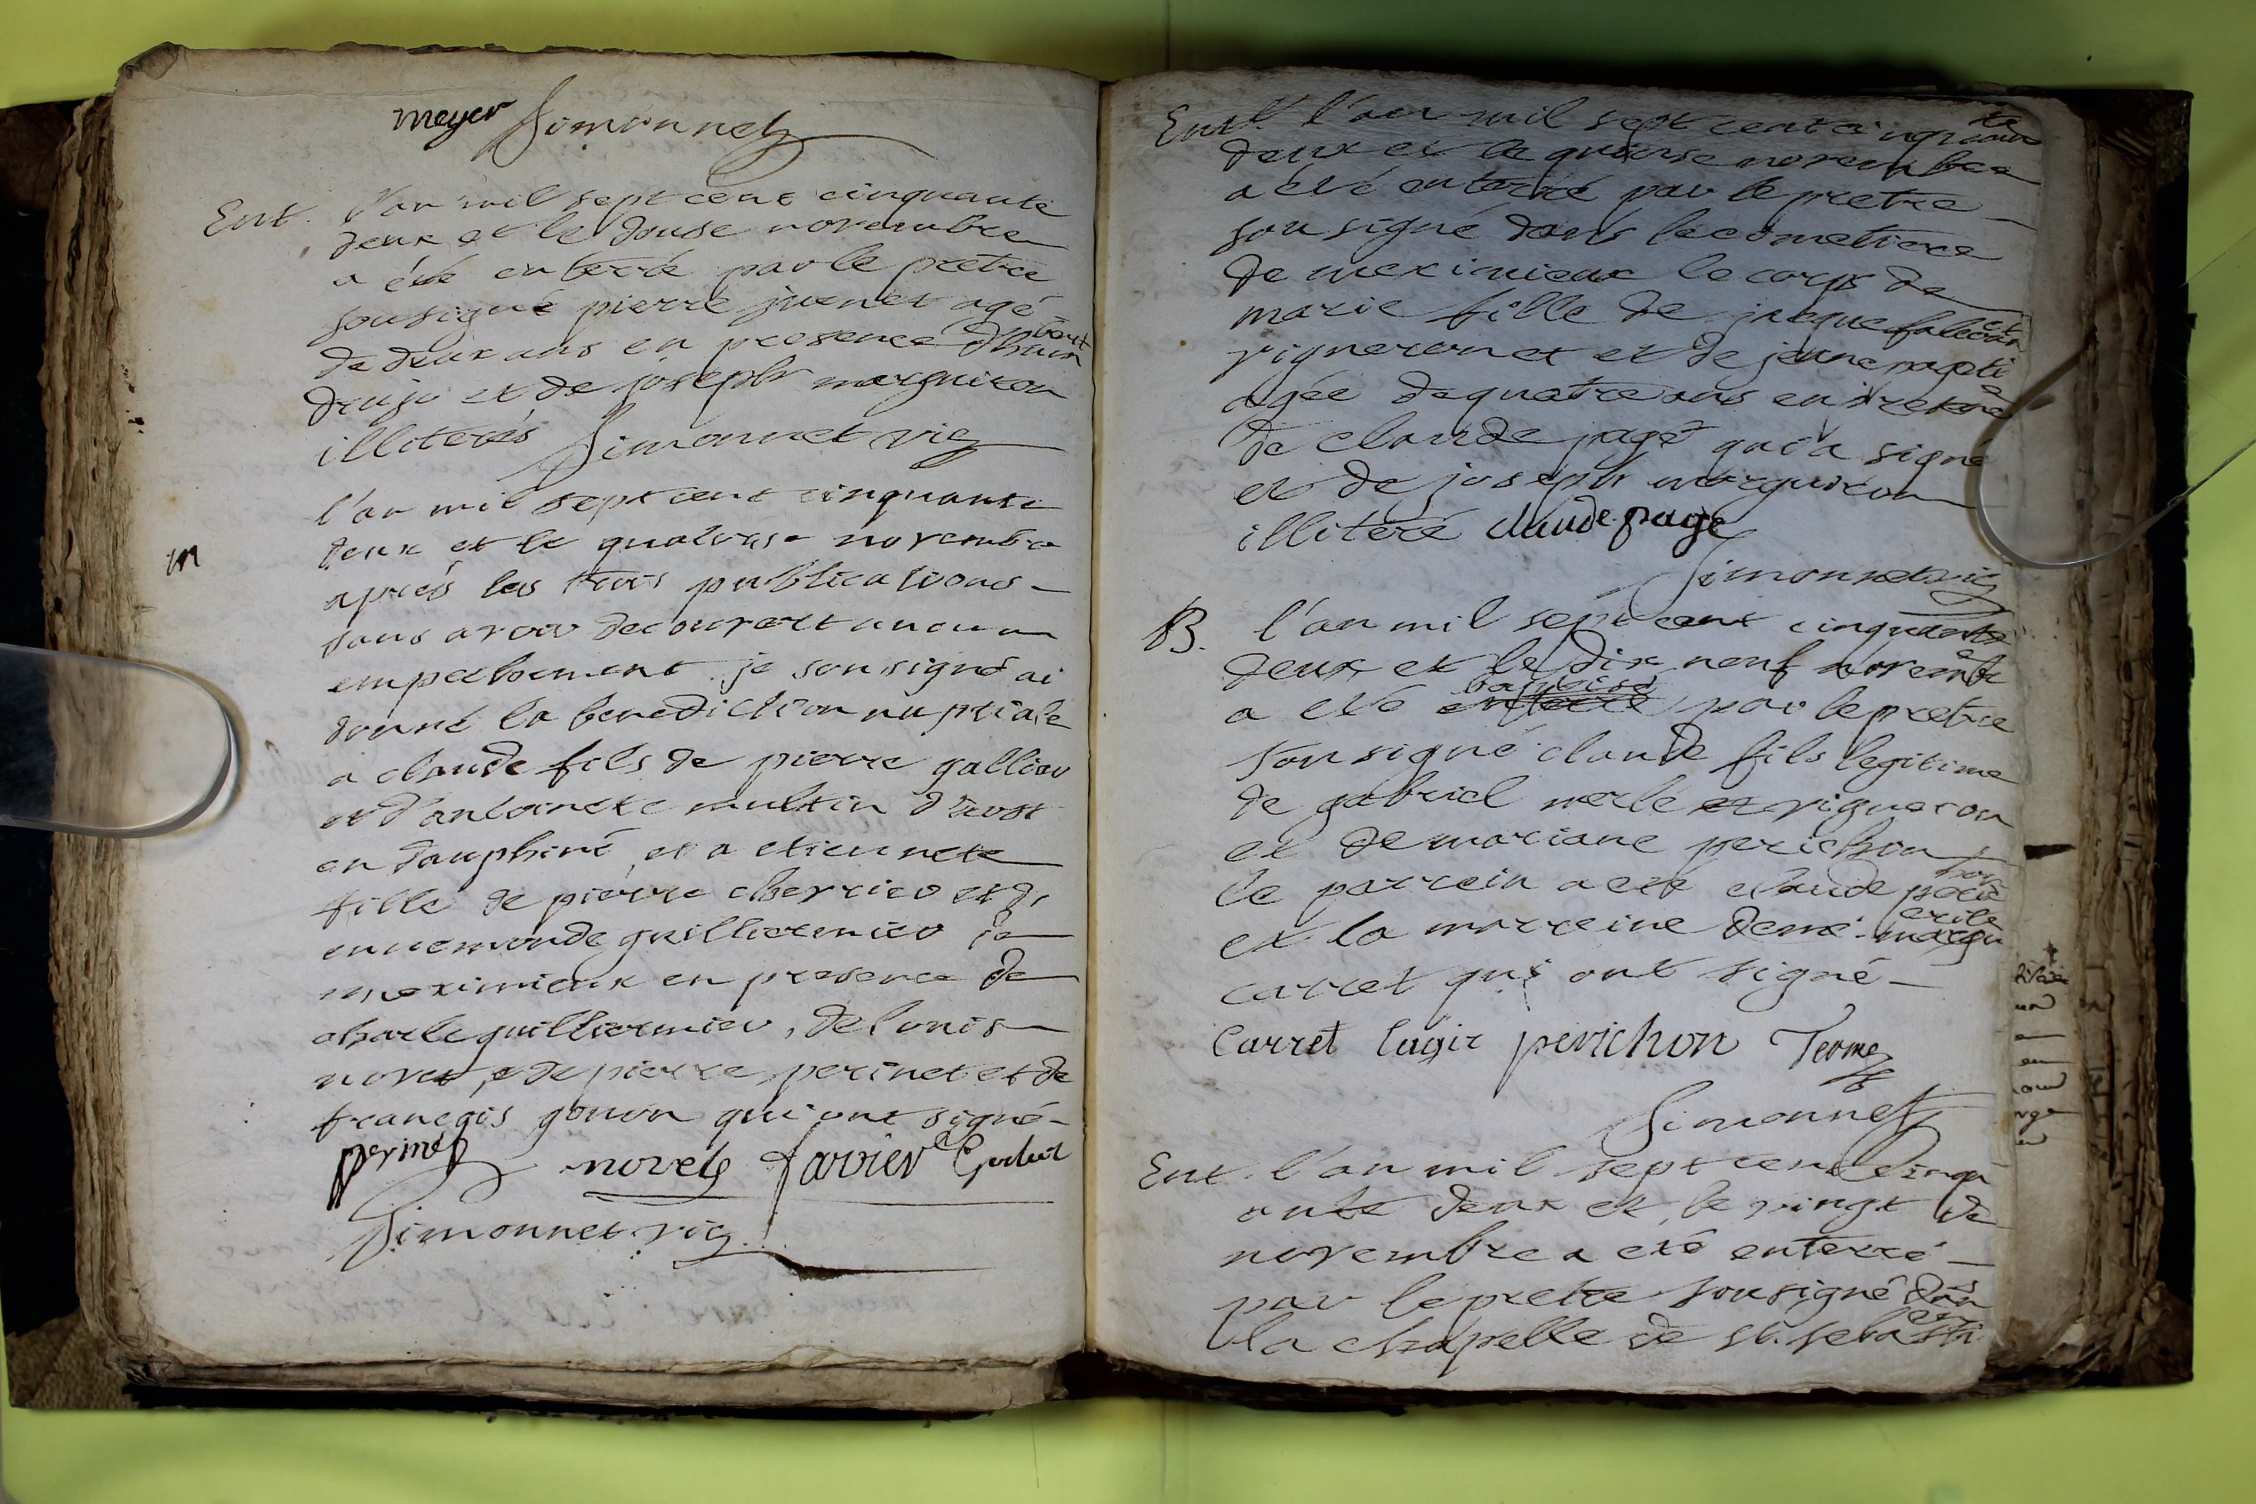 meyer Simonnet
Ent. l'an mil sept cent cinquante
deux et le douse novembre
a été enterré par le pretre
sousigné pierre juenet agé
de deux ans en presence d'humbert
drujo et de joseph marguiron
illiterés Simonnet vic
m l'an mil sept cent cinquante
deux et le quatorse novembre
aprés les trois publications
sans avoir decouvert aucun
empechement je sousigné ai
donné la benediction nuptiale
a claude fils de pierre gallien
et d'antoinete multin d'aost
en dauphiné et a etiennete
fille de pierre cherrier et d'
ennemonde guilliermier de
meximieux en presence de
charle guilliermier, de louis
novet, de pierre perinet et de
françois gonon qui ont signé
perinet novet farvier
Simonnet vic
Ent. l'an mil sept cent cinquante
deux et le quinse novembre
a été enterré par le pretre
sousigné dans le cometiere
de meximieux le corps de
marie fille de jacque
vigneron et de jeane
agée de quatre ans en presence
de claude pagé qui a signé
et de joseph marguiron
illiteré claude page
Simonnet vic
B. l'an mil sept cent cinquante
deux et le dix neuf novembre
a eté enterré baptisé par le pretre
sousigné claude fils legitime
de gabriel merle et vigneron
et de mariane perichon
le parrein a eté claude perichon
et la marreine deme marguerite
carret qui ont signé
Carret lagir perichon Terme
Simonnet
Ent. l'an mil sept cent cinqu
ante deux et le vingt de
novembre a eté enterré
par le pretre sousigné dans
la chapelle de st. sebastien